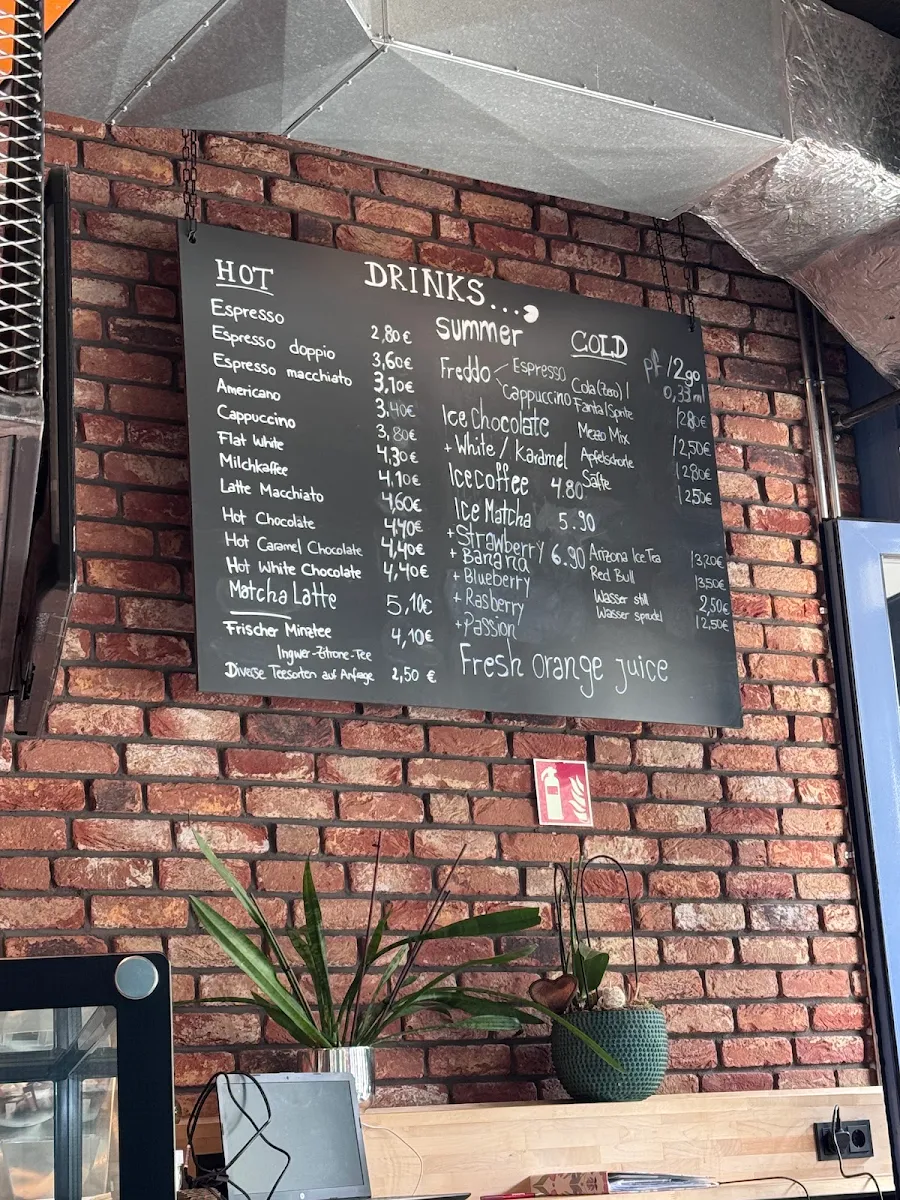 DRINKS...
HOT
Espresso 2,80€
Espresso doppio 3,60€
Espresso macchiato 3,10€
Americano 3,40€
Cappuccino 3,80€
Flat White 4,30€
Milchkaffee 4,10€
Latte Macchiato 4,60€
Hot Chocolate 4,40€
Hot Caramel Chocolate 4,40€
Hot White Chocolate 4,40€
Matcha Latte 5,10€
Frischer Minztee 4,10€
Ingwer-Zitrone-Tee
Diverse Teesorten auf Anfrage 2,50 €
summer
Freddo Espresso
Cappuccino
Ice Chocolate
+ White / Karamel
Icecoffee 4.80
Ice Matcha 5.90
+ Strawberry 6.90
+ Banana
+ Blueberry
+ Rasberry
+ Passion
Fresh orange juice
COLD
pf /2go
0,33 ml
Cola (Zero) |
Fanta/Sprite /2,80€
Mezzo Mix
Apfelschorle /2,50€
Säfte /2,80€
/2,50€
Arizona Ice Tea /3,20€
Red Bull /3,50€
Wasser still 2,50€
Wasser sprudel /2,50€